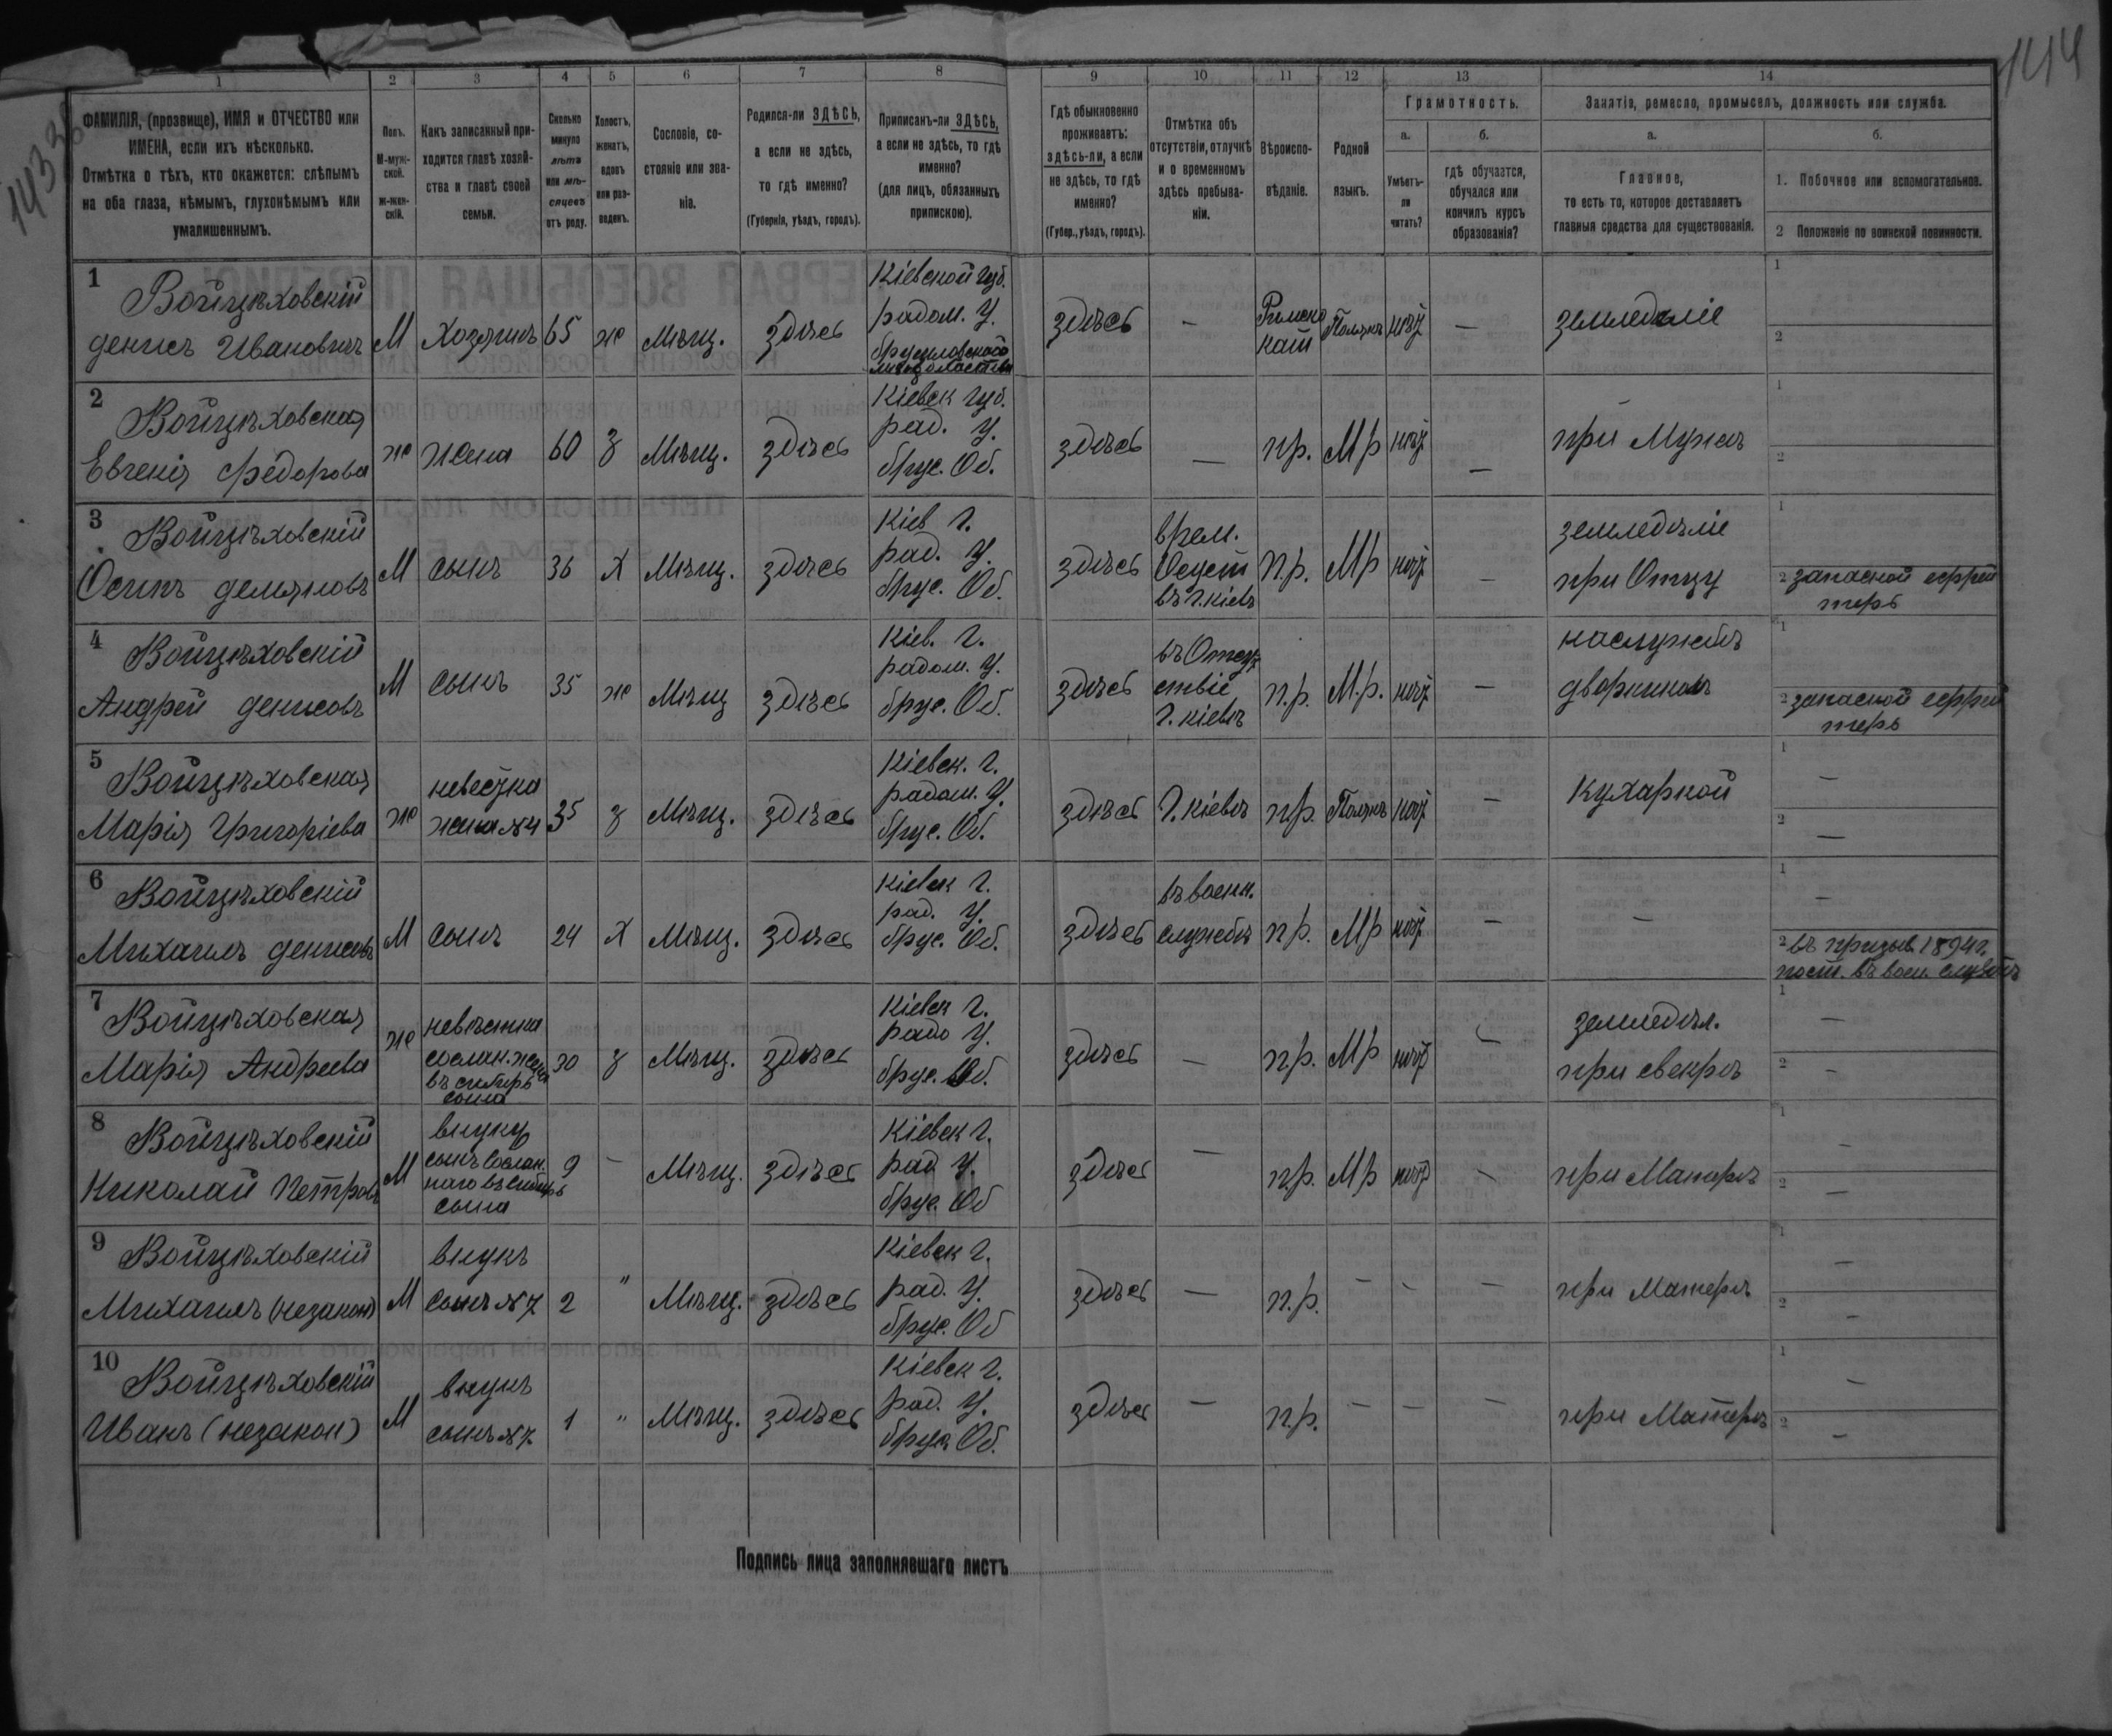 144
1433
1
2
3
4
5
6
7
8
9
10
11
12
13
14
ФАМИЛІЯ, (прозвище), ИМЯ и ОТЧЕСТВО или
ИМЕНА, если ихъ нѣсколько.
Отмѣтка о тѣхъ, кто окажется: слѣпымъ
на оба глаза, нѣмымъ, глухонѣмымъ или
умалишеннымъ.
Полъ.
М-муж-
ской.
ж-жен-
скій.
Какъ записанный при-
ходится главѣ хозяй-
ства и главѣ своей
семьи.
Сколько
минуло
лѣтъ
или мѣ-
сяцевъ
отъ роду.
Холостъ,
женатъ,
вдовъ
или раз-
веденъ.
Сословіе, со-
стояніе или зва-
ніе.
Родился-ли ЗДѢСЬ,
а если не здѣсь,
то гдѣ именно?
(Губернія, уѣздъ, городъ).
Приписанъ-ли ЗДѢСЬ,
а если не здѣсь, то гдѣ
именно?
(для лицъ, обязанныхъ
припискою).
Гдѣ обыкновенно
проживаетъ:
здѣсь-ли, а если
не здѣсь, то гдѣ
именно?
(Губер., уѣздъ, городъ).
Отмѣтка объ
отсутствіи, отлучкѣ
и о временномъ
здѣсь пребыва-
ніи.
Вѣроиспо-
вѣданіе.
Родной
языкъ.
Грамотность.
а.
Умѣетъ-
ли
читать?
б.
гдѣ обучается,
обучался или
кончилъ курсъ
образованія?
Занятіе, ремесло, промыселъ, должность или служба.
а.
Главное,
то есть то, которое доставляетъ
главныя средства для существованія.
б.
1. Побочное или вспомогательное.
2 Положеніе по воинской повинности.
1
Войцѣховскій
денисъ Ивановичъ
М
Хозяинъ
65
же
Мѣщ.
здѣсь
Кіевской губ.
радом. У.
брусиловского
здѣсь
—
Римско
кат
Польскъ
нѣт
—
земледѣліе
1
2
2
Войцѣховская
Евгенія Федорова
же
жена
60
з
Мѣщ.
здѣсь
Кіевск губ.
рад. У.
брус. Об.
здѣсь
—
пр.
Мр
нѣт
—
при Мужѣ
1
2
3
Войцѣховскій
Осипъ демяновъ
М
сынъ
36
Х
Мѣщ.
здѣсь
Кіев г.
рад. У.
брус. Об.
здѣсь
врем.
въ г. кіевѣ
п.р.
Мр
нѣт
—
земледѣліе
при Отцу
1
2 запасной ефрей
терь
4
Войцѣховскій
Андрей денисовъ
М
сынъ
35
же
Мѣщ
здѣсь
Кіев. г.
радом. У.
брус. Об.
здѣсь
въ Отсут
ствіе
г. кіевъ
п.р.
М.р.
нѣт
—
наслужбѣ
дворникомъ
1
2 запасной ефрей
терь
5
Войцѣховская
Марія Григоріева
же
невестка
жена №4
35
з
Мѣщ.
здѣсь
Кіевск. г.
радом. У.
брус. Об.
здѣсь
г. кіевъ
пр.
Польскъ
нѣт
—
кухаркой
1
—
2
—
6
Войцѣховскій
Михаилъ денисовъ
М
сынъ
24
Х
Мѣщ.
здѣсь
Кіевск г.
рад. У.
брус. Об.
здѣсь
въ военн.
службѣ
пр.
Мр
нѣт
—
—
1
—
2 въ призыв. 1894 г.
пост. въ воен. службѣ
7
Войцѣховская
Марія Андреева
же
невѣстка
сослан. жена
въ сибирь
сына
30
з
Мѣщ.
здѣсь
Кіевск г.
радо У.
брус. Об.
здѣсь
—
пр.
Мр
нѣт
—
земледѣл.
при свекрѣ
1
—
2
—
8
Войцѣховскій
Николай Петровъ
М
внуку
сынъ сослан.
наго въ сибирь
сына
9
—
Мѣщ.
здѣсь
Кіевск г.
рад У.
брус. Об
здѣсь
—
пр.
Мр
нѣт
—
при Матерѣ
1
—
2
—
9
Войцѣховскій
Михаилъ (незакон)
М
внукъ
сынъ №7
2
"
Мѣщ.
здѣсь
Кіевск г.
рад. У.
брус. Об
здѣсь
—
п.р.
—
—
—
при Матерѣ
1
—
2
—
10
Войцѣховскій
Иванъ (незакон)
М
внукъ
сынъ №7
1
"
Мѣщ.
здѣсь
Кіевск г.
рад. У.
брус Об.
здѣсь
—
п.р.
—
—
—
при Матерѣ
1
—
2
—
Подпись лица заполнявшаго листъ